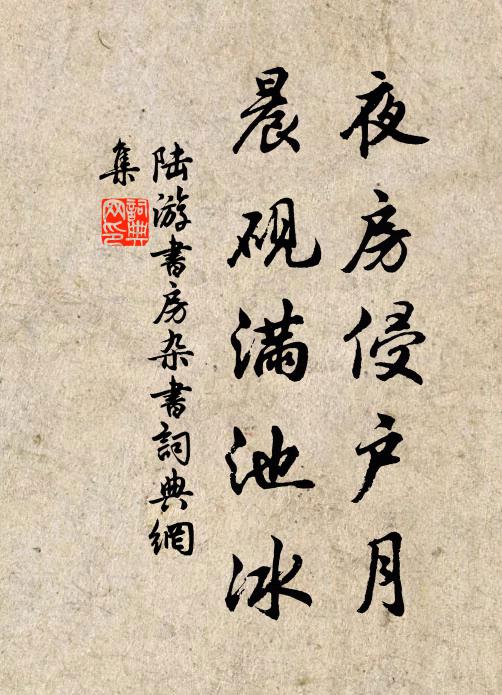 夜房侵户月
晨砚满池冰
陆游書房杂書詞典網
集
詞典
网印